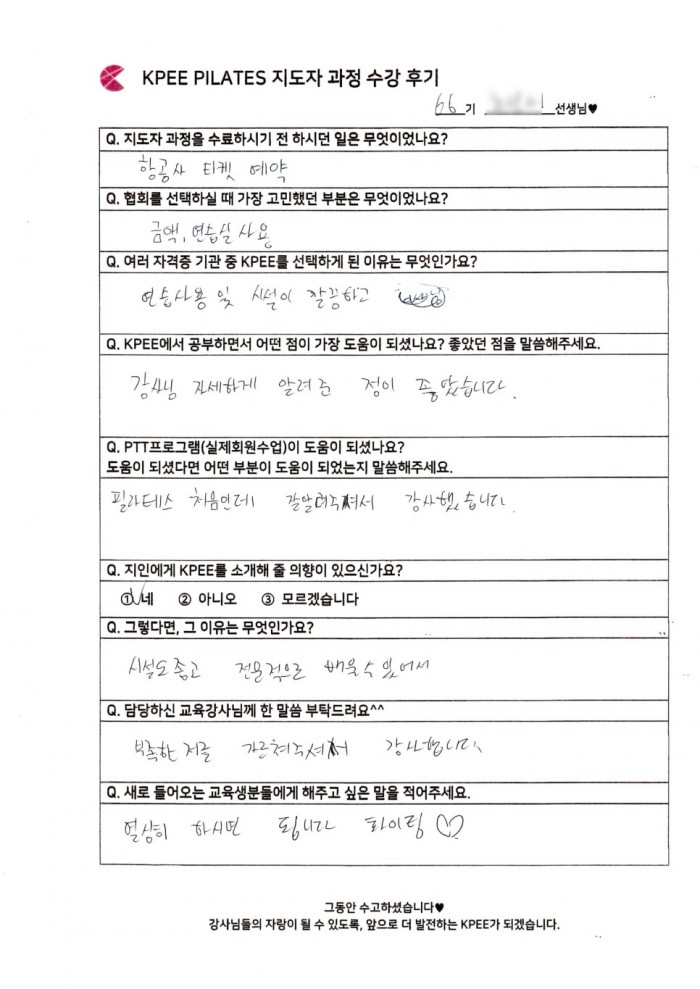 KPEE PILATES 지도자 과정 수강 후기
66기 선생님♥
Q. 지도자 과정을 수료하시기 전 하시던 일은 무엇이었나요?
항공사 티켓 예약
Q. 협회를 선택하실 때 가장 고민했던 부분은 무엇이었나요?
금액, 연습실 사용
Q. 여러 자격증 기관 중 KPEE를 선택하게 된 이유는 무엇인가요?
연습사용 및 시설이 깔끔하고
Q. KPEE에서 공부하면서 어떤 점이 가장 도움이 되셨나요? 좋았던 점을 말씀해주세요.
강사님 자세하게 알려준 점이 좋았습니다.
Q. PTT프로그램(실제회원수업)이 도움이 되셨나요?
도움이 되셨다면 어떤 부분이 도움이 되었는지 말씀해주세요.
필라테스 처음인데 잘알려주셔서 감사했습니다.
Q. 지인에게 KPEE를 소개해 줄 의향이 있으신가요?
① 네 ② 아니오 ③ 모르겠습니다
Q. 그렇다면, 그 이유는 무엇인가요?
시설도 좋고 전문적으로 배울수 있어서
Q. 담당하신 교육강사님께 한 말씀 부탁드려요^^
부족한 저를 가르쳐주셔서 감사합니다.
Q. 새로 들어오는 교육생분들에게 해주고 싶은 말을 적어주세요.
열심히 하시면 됩니다 화이팅 ♡
그동안 수고하셨습니다♥
강사님들의 자랑이 될 수 있도록, 앞으로 더 발전하는 KPEE가 되겠습니다.